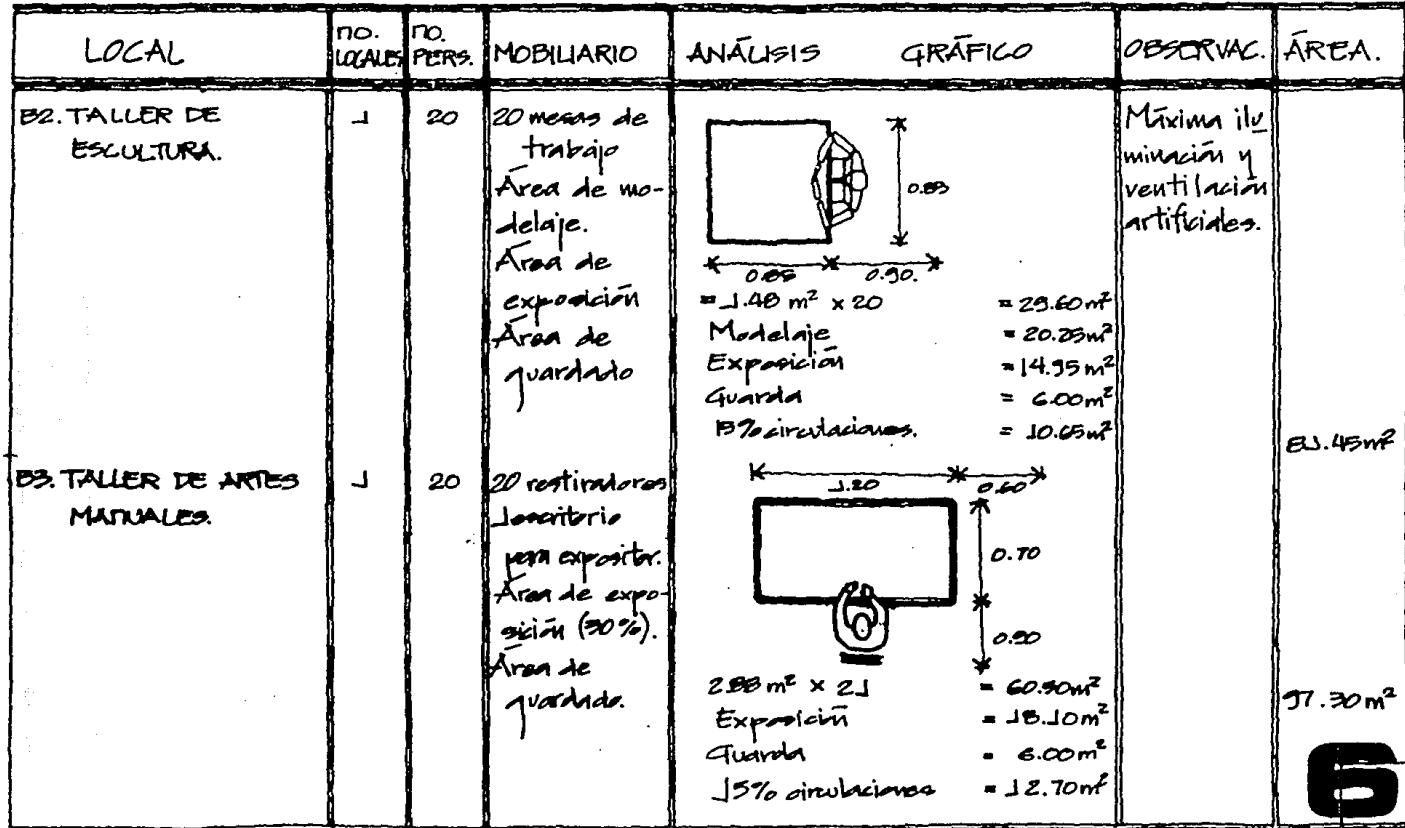 LOCAL
no. LOCALES
no. PERS.
MOBILIARIO
ANÁLISIS GRÁFICO
OBSERVAC.
ÁREA.
B2. TALLER DE
ESCULTURA.
1
20
20 mesas de
trabajo
Área de mo-
delaje.
Área de
exposición
Área de
guardado
0.85
0.90.
= 1.48 m² x 20 = 29.60 m²
Modelaje = 20.25 m²
Exposición = 14.95 m²
Guarda = 6.00 m²
15% circulaciones. = 10.65 m²
Máxima ilu
minación y
ventilación
artificiales.
81.45 m²
B3. TALLER DE ARTES
MANUALES.
1
20
20 restiradores
1 escritorio
para expositor.
Área de expo-
sición (30%).
Área de
guardado.
1.20 0.60
0.70
0.90
2.88 m² x 21 = 60.50 m²
Exposición = 18.10 m²
Guarda = 6.00 m²
15% circulaciones = 12.70 m²
97.30 m²
6